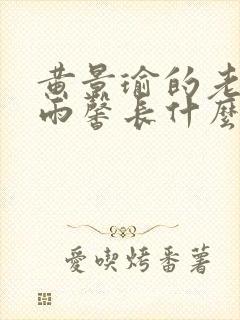 黄景瑜的老
雨馨长什麼
愛喫烤番薯